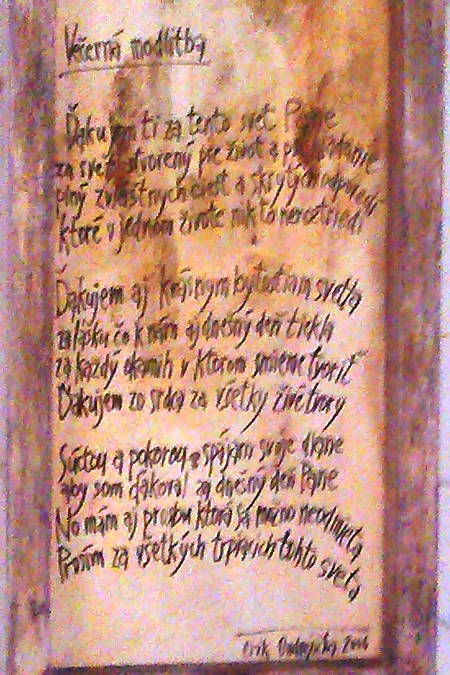 Večerná modlitba
Ďakujem ti za tento svet Pane
za svet stvorený pre život a
plný zvláštnych ciest a skrytých odpovedí
ktoré v jednom živote nikto neroztriedi
Ďakujem aj krásnym bytostiam svetla
za lásku čo k nám aj dnešný deň tiekla
za každý okamih v ktorom smieme tvoriť
Ďakujem zo srdca za všetky živé tvory
Súctou a pokorou spájam svoje dlane
aby som ďakoval za dnešný deň Pane
No mám aj prosbu ktorá sa možno neodmieta
Prosím za všetkých trpiacich tohto sveta
Erik 2006